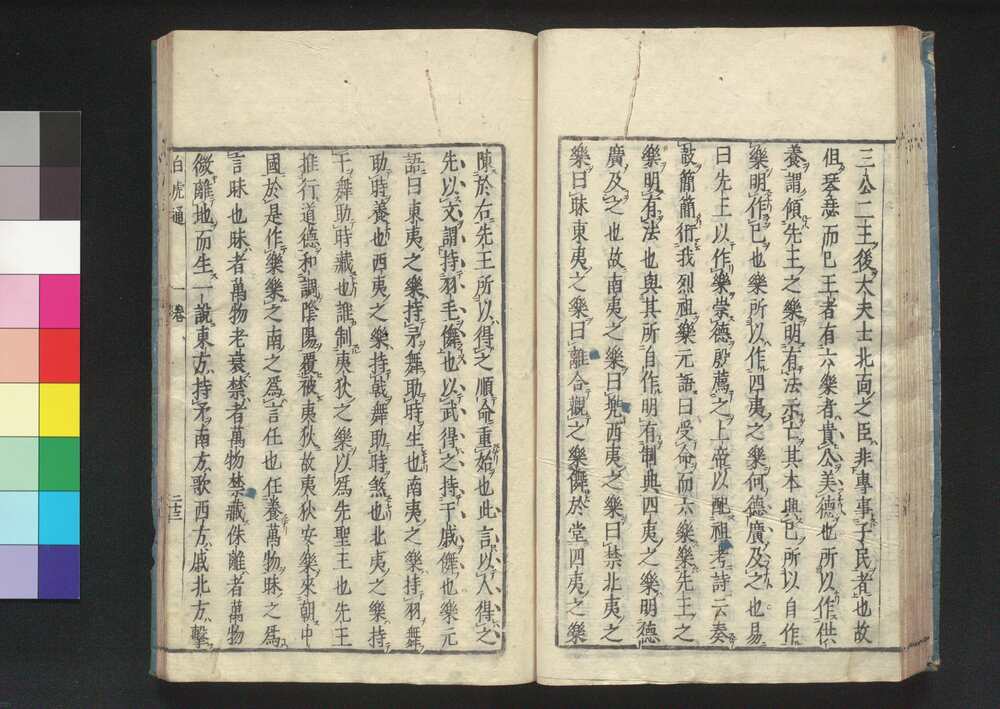 三公二王後大夫士北向之臣非專事子民者也故
但琴瑟而已王者有六樂者貴公美德也所以作供
養謂傾先王之樂明有法示亡其本興已所以自作
樂明作已也樂所以作四夷之樂何德廣及之也易
曰先王以作樂崇德殷薦之上帝以配祖考詩云奏
鼓簡簡衎我烈祖樂元語曰受命而六樂樂先王之
樂明有法也與其所自作明有制典四夷之樂明德
廣及之也故南夷之樂曰兠西夷之樂曰禁北夷之
樂曰昧東夷之樂曰離合觀之樂儛於堂四夷之樂
陳於右先王所以得之順命重始也此言以人得之
先以文謂持羽毛儛也以武得之持干戚儛也樂元
語曰東夷之樂持矛舞助時生也南夷之樂持羽舞
助時養也西夷之樂持戟舞助時煞也北夷之樂持
干舞助時藏也誰制夷狄之樂以爲先聖王也先王
推行道德和調陰陽覆被夷狄故夷狄安樂來朝中
國於是作樂樂之南之爲言任也任養萬物昧之爲
言昧也昧者萬物老衰禁者萬物禁藏侏離者萬物
微離地而生一說東方持矛南方歌西方戚北方擊
白虎通 一卷 二十三